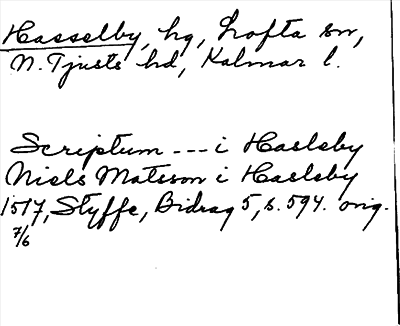 Hasselby, hg, Lofta sn,
N. Tjusts hd, Kalmar l.
Scriptum --- i Haelsby
Niels Matsson i Haelsby
1517, Styffe, Bidrag 5, s. 594. orig.
7/6